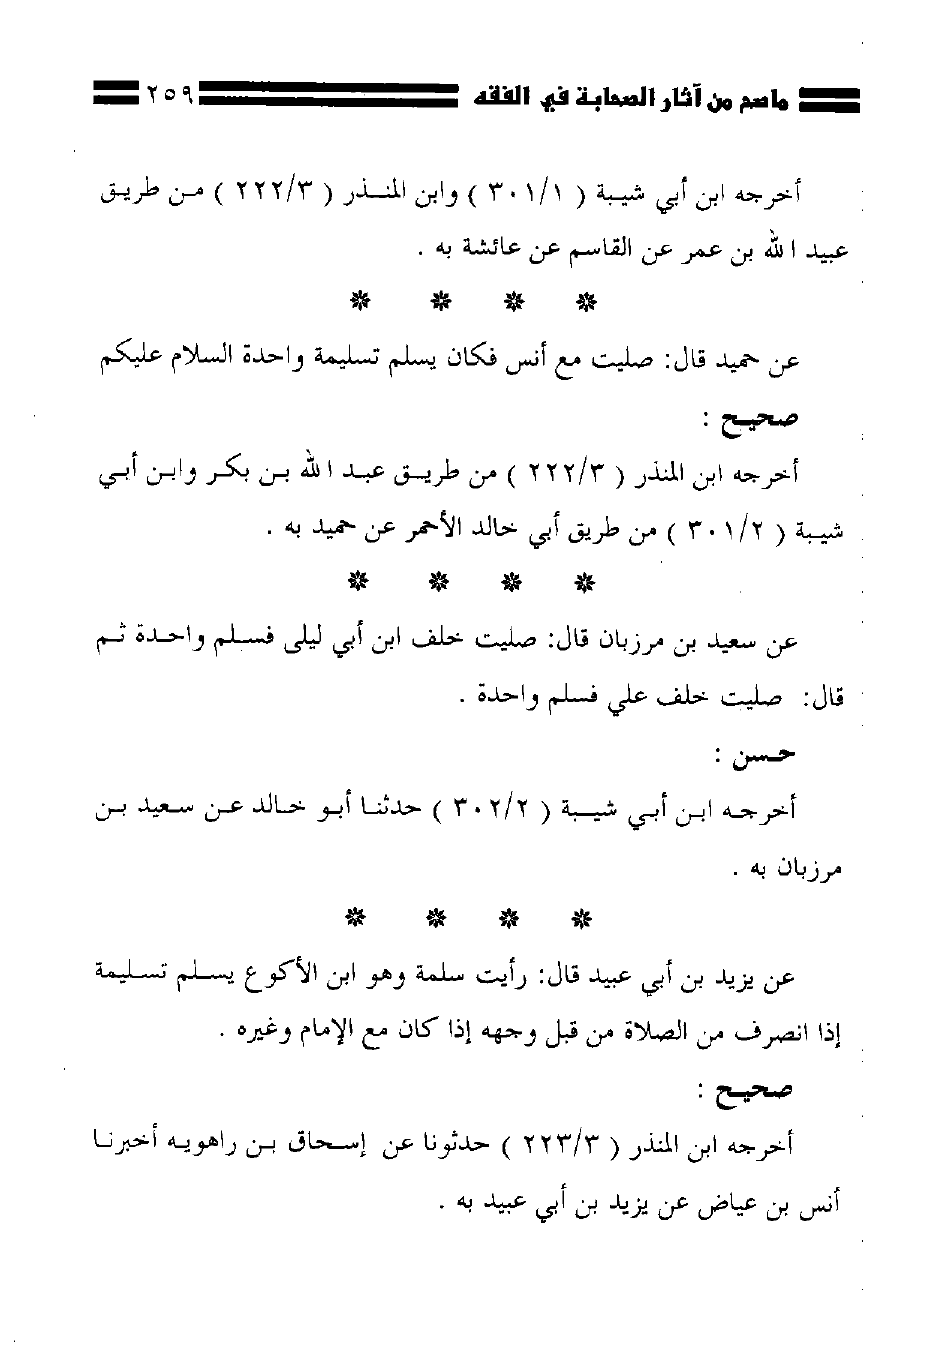 ماصح من آثار الصحابة في الفقه ٢٥٩
أخرجه ابن أبي شيبة ( ٣٠١/١ ) وابن المنذر ( ٢٢٢/٣ ) من طريق
عبيد الله بن عمر عن القاسم عن عائشة به .
* * * *
عن حميد قال: صليت مع أنس فكان يسلم تسليمة واحدة السلام عليكم
صحيح :
أخرجه ابن المنذر ( ٢٢٢/٣ ) من طريق عبد الله بن بكر وابن أبي
شيبة ( ٣٠١/٢ ) من طريق أبي خالد الأحمر عن حميد به .
* * * *
عن سعيد بن مرزبان قال: صليت خلف ابن أبي ليلى فسلم واحدة ثم
قال: صليت خلف علي فسلم واحدة .
حسن :
أخرجه ابن أبي شيبة ( ٣٠٢/٢ ) حدثنا أبو خالد عن سعيد بن
مرزبان به .
* * * *
عن يزيد بن أبي عبيد قال: رأيت سلمة وهو ابن الأكوع يسلم تسليمة
إذا انصرف من الصلاة من قبل وجهه إذا كان مع الإمام وغيره .
صحيح :
أخرجه ابن المنذر ( ٢٢٣/٣ ) حدثونا عن إسحاق بن راهويه أخبرنا
أنس بن عياض عن يزيد بن أبي عبيد به .